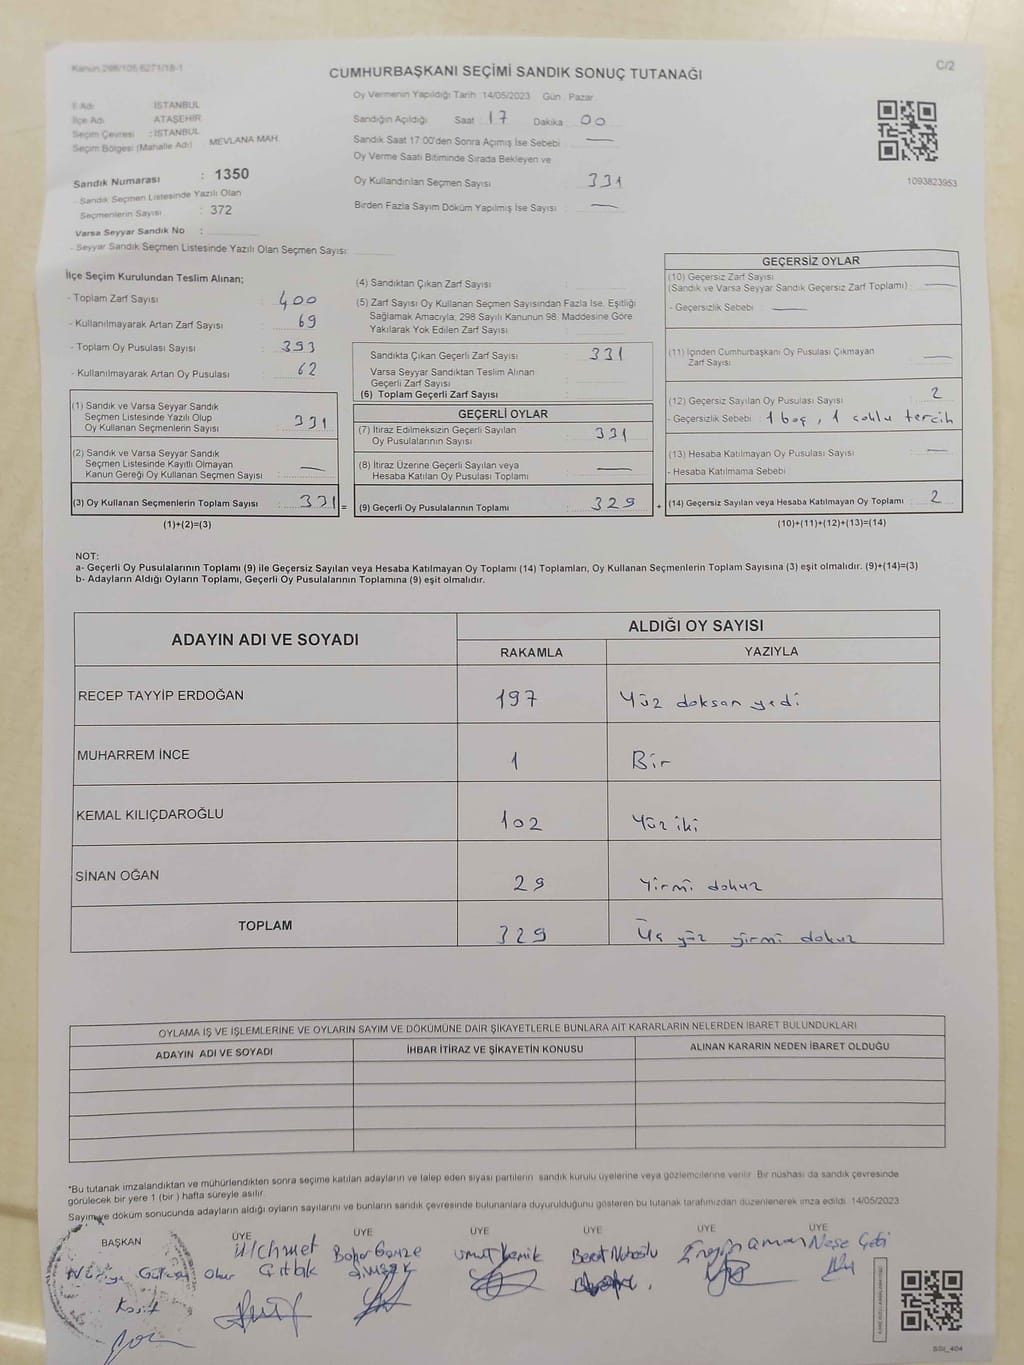 Kanun 298/105,6271/18-1
CUMHURBAŞKANI SEÇİMİ SANDIK SONUÇ TUTANAĞI
C/2
Oy Vermenin Yapıldığı Tarih : 14/05/2023 Gün : Pazar
İl Adı : İSTANBUL
İlçe Adı : ATAŞEHİR
Seçim Çevresi : İSTANBUL
Seçim Bölgesi (Mahalle Adı) MEVLANA MAH
Sandık Numarası : 1350
- Sandık Seçmen Listesinde Yazılı Olan
Seçmenlerin Sayısı : 372
Varsa Seyyar Sandık No :
- Seyyar Sandık Seçmen Listesinde Yazılı Olan Seçmen Sayısı:
Sandığın Açıldığı Saat 17 Dakika 00
Sandık Saat 17 00'den Sonra Açımış İse Sebebi : —
Oy Verme Saati Bitiminde Sırada Bekleyen ve
Oy Kullandırılan Seçmen Sayısı : 331
Birden Fazla Sayım Döküm Yapılmış İse Sayısı : —
1093823953
İlçe Seçim Kurulundan Teslim Alınan;
- Toplam Zarf Sayısı : 400
- Kullanılmayarak Artan Zarf Sayısı : 69
- Toplam Oy Pusulası Sayısı : 393
- Kullanılmayarak Artan Oy Pusulası : 62
(1) Sandık ve Varsa Seyyar Sandık
Seçmen Listesinde Yazılı Olup
Oy Kullanan Seçmenlerin Sayısı : 331
(2) Sandık ve Varsa Seyyar Sandık
Seçmen Listesinde Kayıtlı Olmayan
Kanun Gereği Oy Kullanan Seçmen Sayısı : —
(3) Oy Kullanan Seçmenlerin Toplam Sayısı : 331 =
(1)+(2)=(3)
(4) Sandıktan Çıkan Zarf Sayısı :
(5) Zarf Sayısı Oy Kullanan Seçmen Sayısından Fazla İse, Eşitliği
Sağlamak Amacıyla, 298 Sayılı Kanunun 98. Maddesine Göre
Yakılarak Yok Edilen Zarf Sayısı :
Sandıkta Çıkan Geçerli Zarf Sayısı : 331
Varsa Seyyar Sandıktan Teslim Alınan
Geçerli Zarf Sayısı :
(6) Toplam Geçerli Zarf Sayısı :
GEÇERLİ OYLAR
(7) İtiraz Edilmeksizin Geçerli Sayılan
Oy Pusulalarının Sayısı : 331
(8) İtiraz Üzerine Geçerli Sayılan veya
Hesaba Katılan Oy Pusulası Toplamı : —
(9) Geçerli Oy Pusulalarının Toplamı : 329 +
GEÇERSİZ OYLAR
(10) Geçersiz Zarf Sayısı
(Sandık ve Varsa Seyyar Sandık Geçersiz Zarf Toplamı) : —
- Geçersizlik Sebebi : —
(11) İçinden Cumhurbaşkanı Oy Pusulası Çıkmayan
Zarf Sayısı : —
(12) Geçersiz Sayılan Oy Pusulası Sayısı : 2
- Geçersizlik Sebebi : 1 boş, 1 çoklu tercih
(13) Hesaba Katılmayan Oy Pusulası Sayısı : —
- Hesaba Katılmama Sebebi :
(14) Geçersiz Sayılan veya Hesaba Katılmayan Oy Toplamı : 2
(10)+(11)+(12)+(13)=(14)
NOT:
a- Geçerli Oy Pusulalarının Toplamı (9) ile Geçersiz Sayılan veya Hesaba Katılmayan Oy Toplamı (14) Toplamları, Oy Kullanan Seçmenlerin Toplam Sayısına (3) eşit olmalıdır. (9)+(14)=(3)
b- Adayların Aldığı Oyların Toplamı, Geçerli Oy Pusulalarının Toplamına (9) eşit olmalıdır.
ADAYIN ADI VE SOYADI ALDIĞI OY SAYISI
RAKAMLA YAZIYLA
RECEP TAYYİP ERDOĞAN 197 Yüz doksan yedi
MUHARREM İNCE 1 Bir
KEMAL KILIÇDAROĞLU 102 Yüz iki
SİNAN OĞAN 29 Yirmi dokuz
TOPLAM 329 Üç yüz yirmi dokuz
OYLAMA İŞ VE İŞLEMLERİNE VE OYLARIN SAYIM VE DÖKÜMÜNE DAİR ŞİKAYETLERLE BUNLARA AİT KARARLARIN NELERDEN İBARET BULUNDUKLARI
ADAYIN ADI VE SOYADI İHBAR İTİRAZ VE ŞİKAYETİN KONUSU ALINAN KARARIN NEDEN İBARET OLDUĞU
*Bu tutanak imzalandıktan ve mühürlendikten sonra seçime katılan adayların ve talep eden siyasi partilerin sandık kurulu üyelerine veya gözlemcilerine verilir. Bir nüshası da sandık çevresinde
görülecek bir yere 1 (bir ) hafta süreyle asılır.
Sayım ve döküm sonucunda adayların aldığı oyların sayılarını ve bunların sandık çevresinde bulunanlara duyurulduğunu gösteren bu tutanak tarafımızdan düzenlenerek imza edildi. 14/05/2023
BAŞKAN ÜYE ÜYE ÜYE ÜYE ÜYE ÜYE
Neşe Çebi
SSI_404